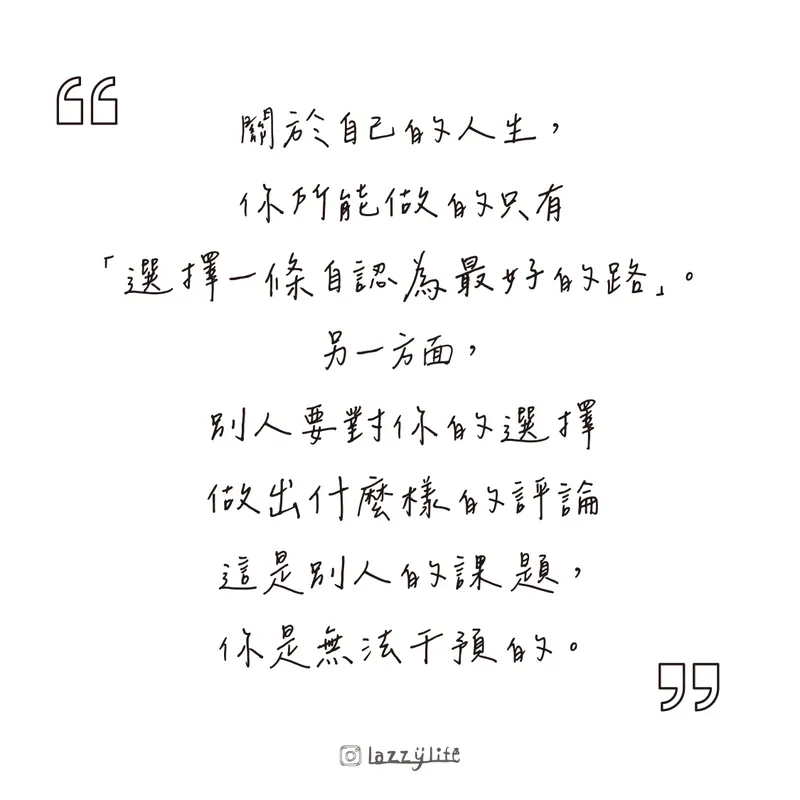 關於自己的人生，
你所能做的只有
「選擇一條自認為最好的路」。
另一方面，
別人要對你的選擇
做出什麼樣的評論
這是別人的課題，
你是無法干預的。
lazzylife